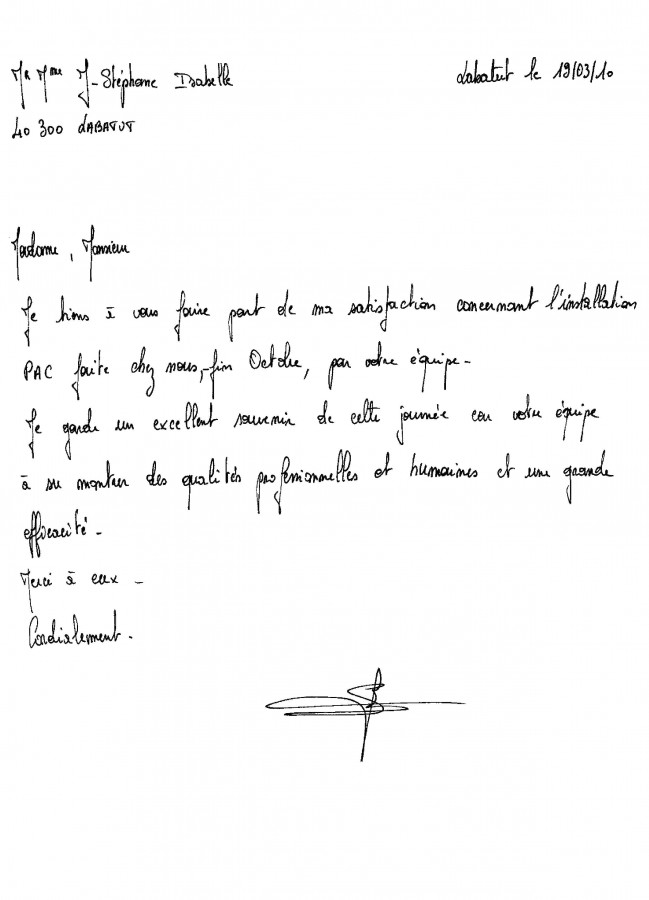 Mr Mme J-Stéphane Isabelle
Labatut le 19/03/10
40 300 LABATUT
Madame, Monsieur
Je tiens à vous faire part de ma satisfaction concernant l'installation
PAC faite chez nous, fin Octobre, par votre équipe-
Je garde un excellent souvenir de cette journée car votre équipe
à su montrer des qualités professionnelles et humaines et une grande
efficacité-
Merci à eux -
Cordialement.